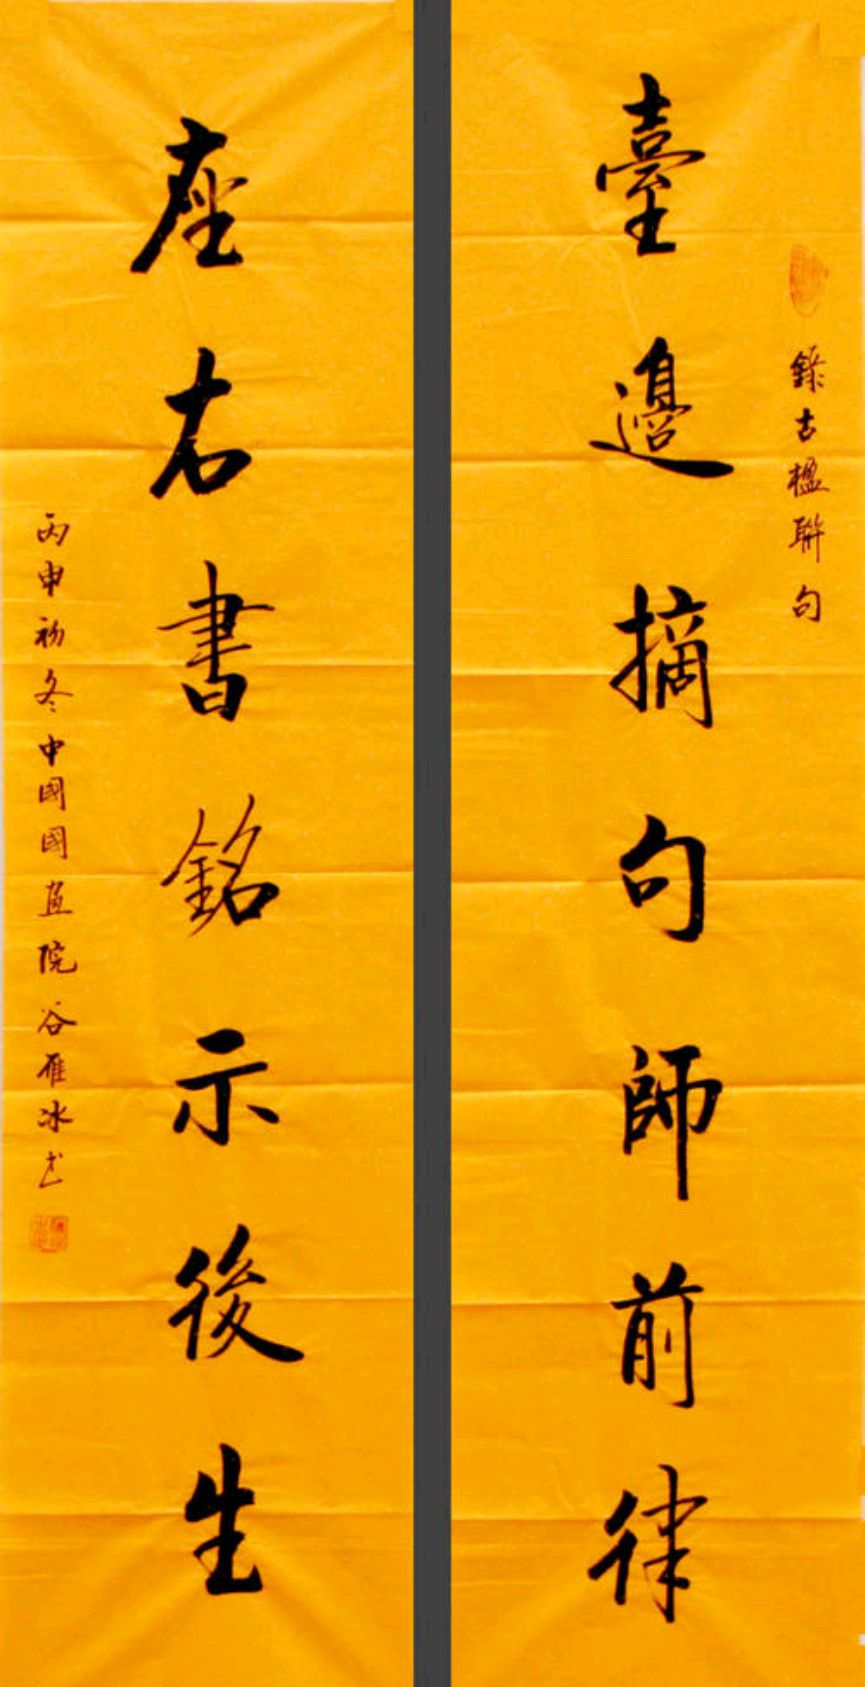 錄古楹聯句
臺邊摘句師前律
座右書銘示後生
丙申初冬中國國畫院谷雁冰书